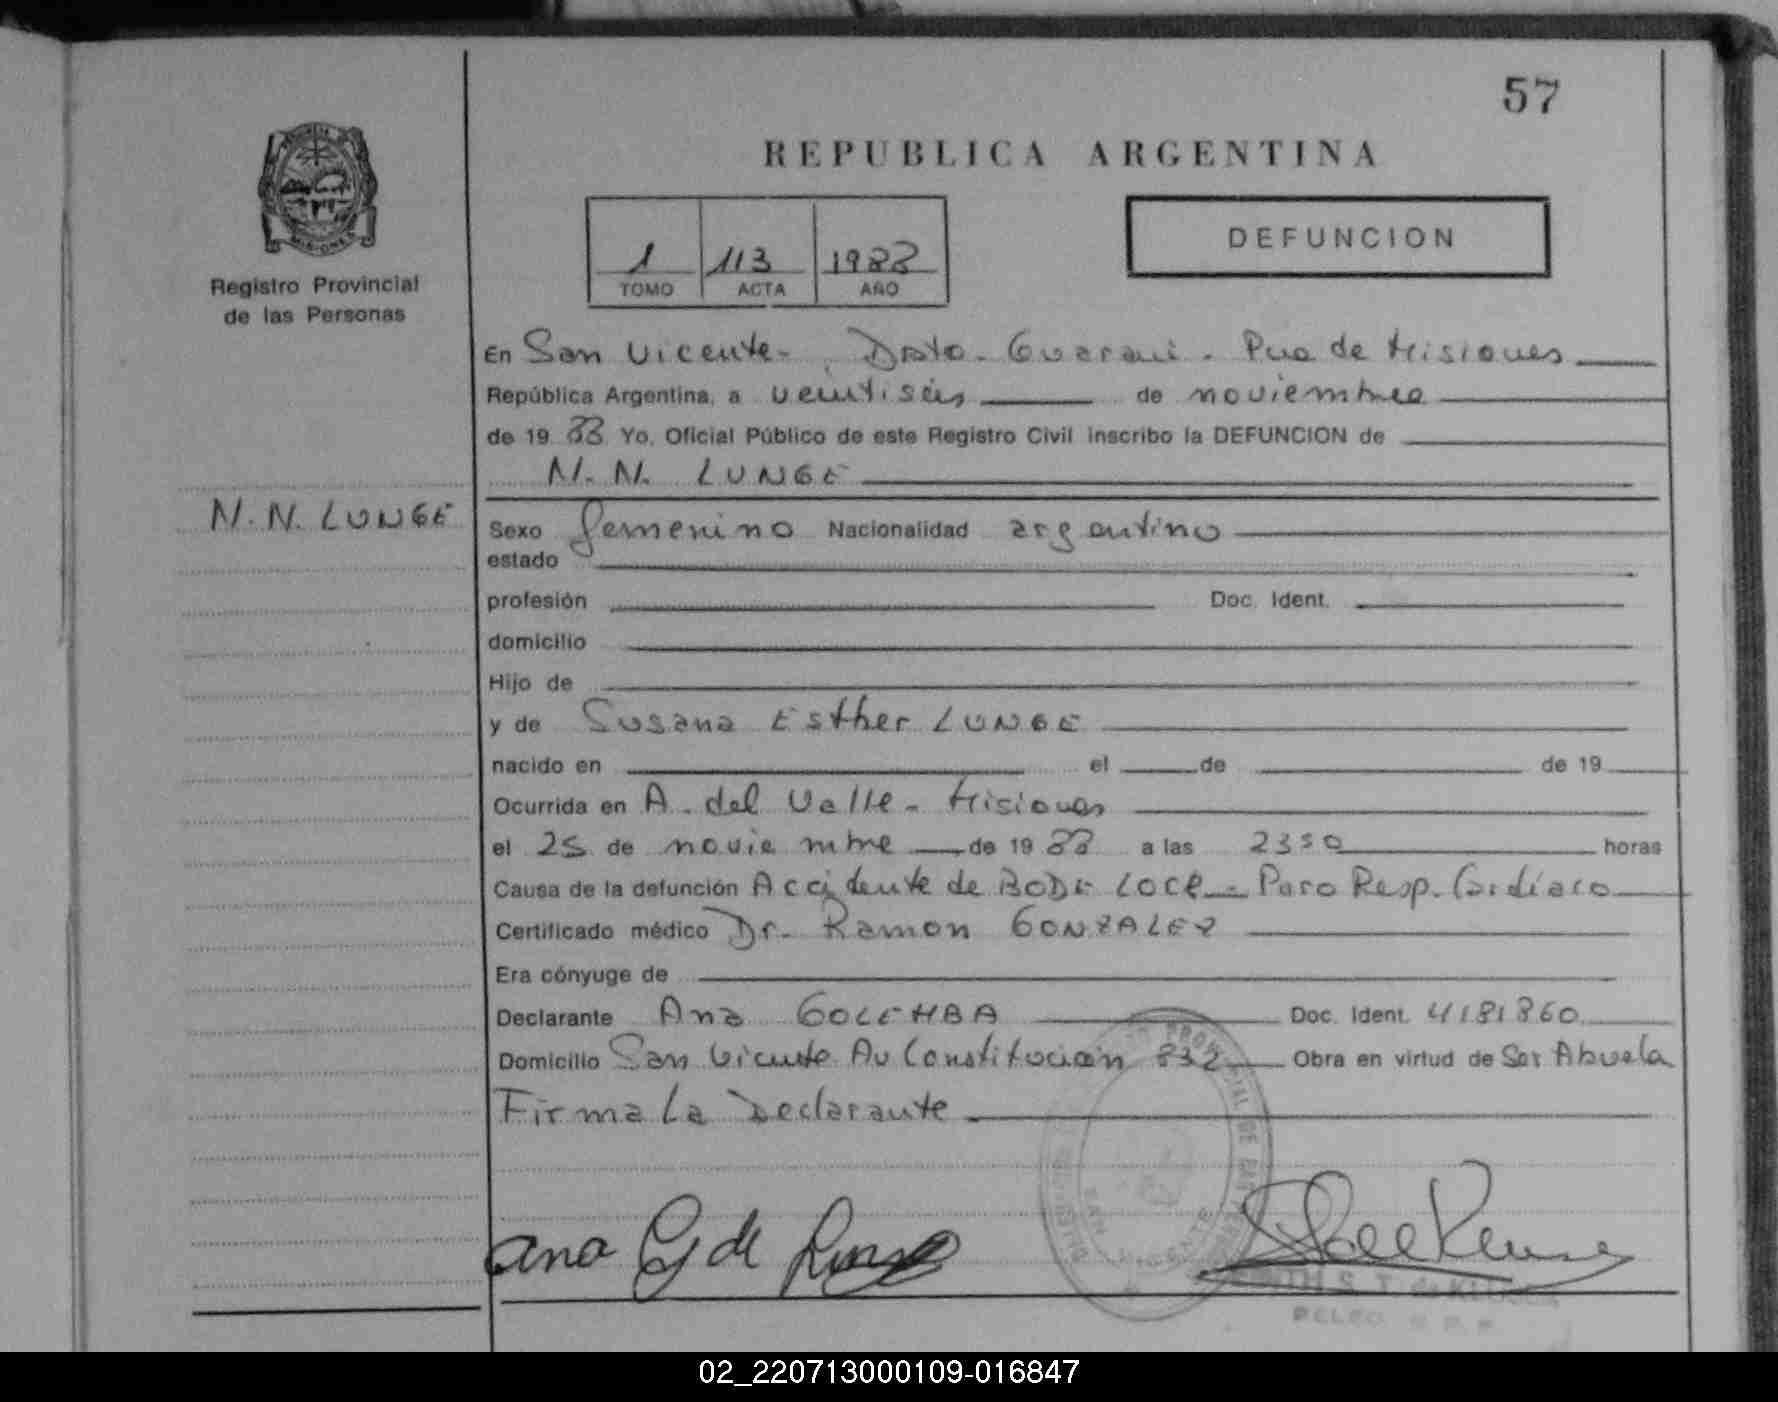 57
REPUBLICA ARGENTINA
1 113 1988
TOMO ACTA AÑO
DEFUNCION
MISIONES
Registro Provincial
de las Personas
En San Vicente - Dpto. Guarani. Pcia de Misiones
República Argentina, a veintiséis de noviembre
de 19 88 Yo, Oficial Público de este Registro Civil inscribo la DEFUNCION de
N. N. LUNGE
N. N. LUNGE
Sexo femenino Nacionalidad argentino
estado
profesión Doc. Ident.
domicilio
Hijo de
y de Susana Esther LUNGE
nacido en el de de 19
Ocurrida en A. del Valle - Misiones
el 25 de noviembre de 1988 a las 2350 horas
Causa de la defunción Accidente de Paro Resp. Cardíaco
Certificado médico Dr. Ramon GONZALEZ
Era cónyuge de
Declarante Ana GOLEMBA Doc. Ident. 4181860
Domicilio San Vicente Av Constitución 832 Obra en virtud de Ser Abuela
Firma La Declarante
Ana G de Lunge
02_220713000109-016847